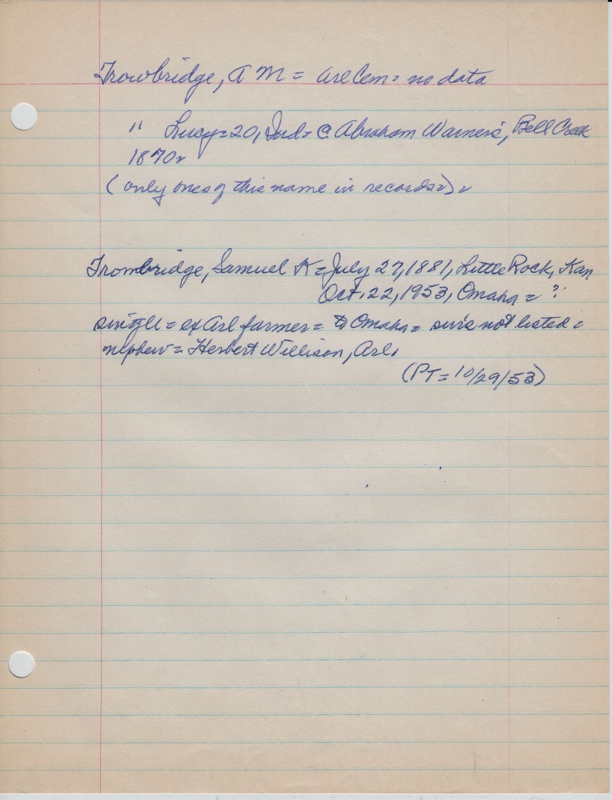 Trowbridge, A M = Arl Cem = no data
" Lucy = 20, Ind = @ Abraham Warner's, Bell Creek
1870.
(only ones of this name in records).
Trombridge, Samuel K = July 27, 1881, Little Rock, Kan
Oct. 22, 1953, Omaha = ?
single = ex Arl farmer = to Omaha = surv's not listed =
nephew = Herbert Willison, Arl.
(PT = 10/29/53)